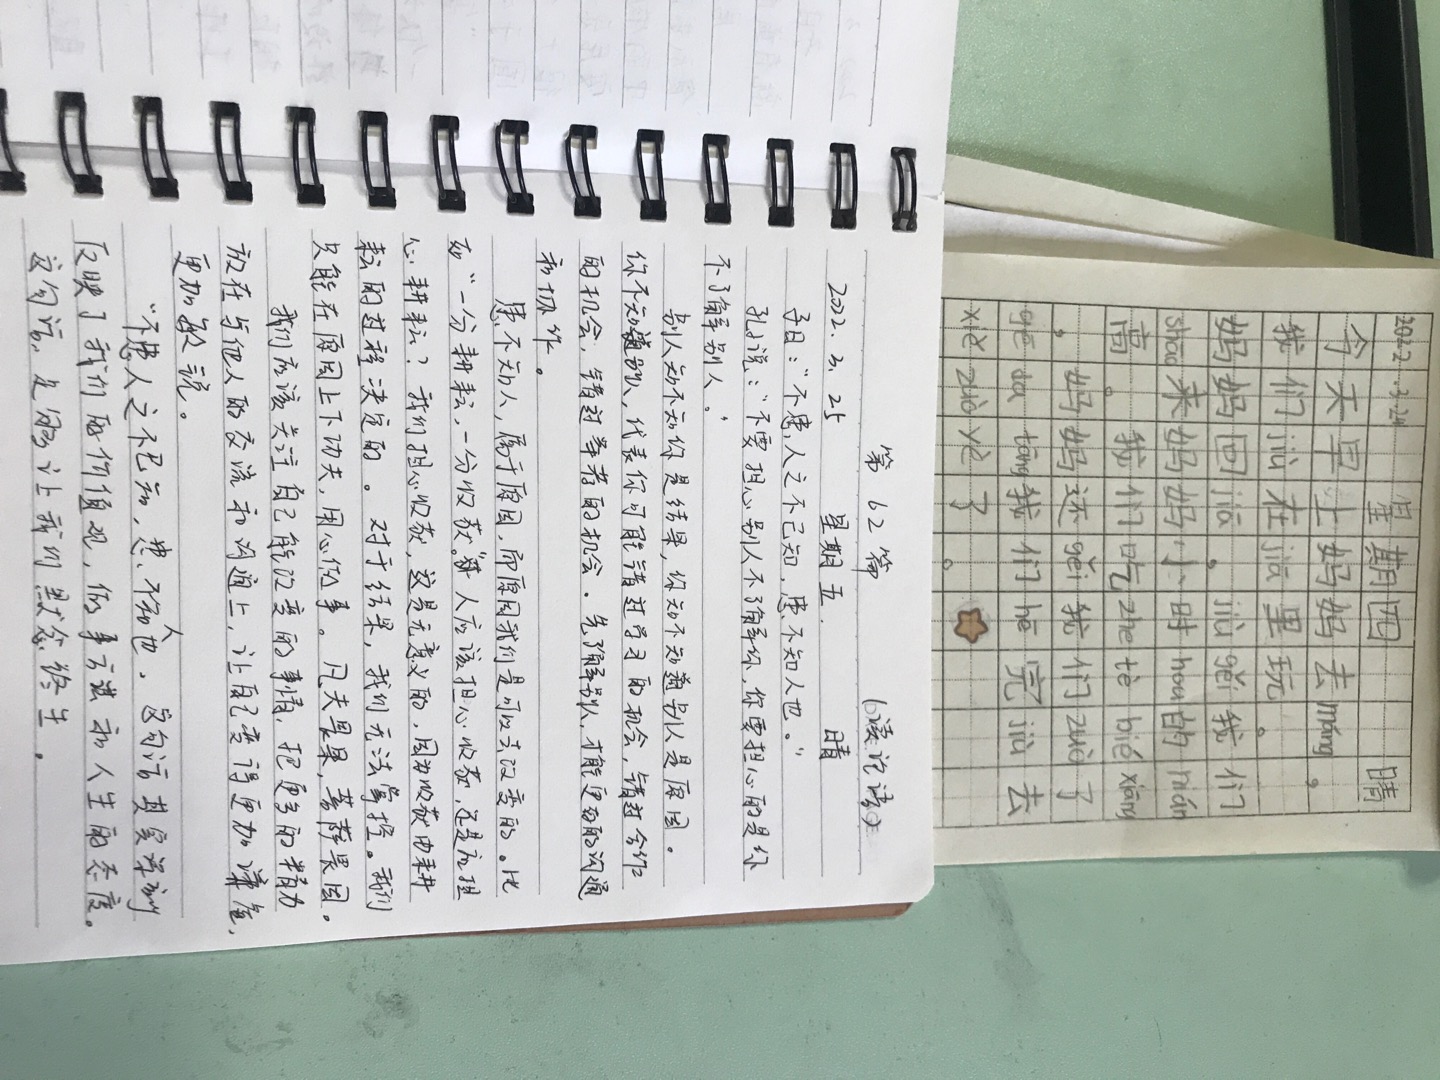 第62篇 (《读论语》)
2022.3.25 星期五. 晴
子曰："不患人之不己知,患不知人也。"
孔子说："不要担心别人不了解你,你要担心的是你
不了解别人。"
别人知不知你是结果,你知不知别人是原因。
你不知道别人,代表你可能错过学习的机会,错过合作
的机会,错过举荐的机会.先了解别人,才能更好的沟通
和协作。
患不知人,属于原因,而原因我们是可以去改变的。比
如"一分耕耘,一分收获。"人应该担心收获,还是应担
心耕耘?我们担心收获,这是无意义的,因为收获由耕
耘的过程决定的。对于结果,我们无法掌控。我们
只能在原因上下功夫,用心做事。凡夫畏果,菩萨畏因。
我们应该关注自己能改变的事情,把更多的精力
放在与他人的交流和沟通上,让自己变得更加谦虚,
更加敏锐。
"不患人之不己知,患不知人也.这句话其实深刻
反映了我们的价值观,做事方法和人生的态度。
这句话,足够让我们默念终生.
2022.3.24 星期四 晴
今天早上妈妈去máng,
我们jiù在jiā里玩。
妈妈回jiā,jiù gěi我们
shāo来妈妈小时hou的nián
高。我们吃zhe tè bié xiāng
,妈妈还gěi我们zuò了
gē da tāng我们hē完jiù去
xiě zuò yè了。